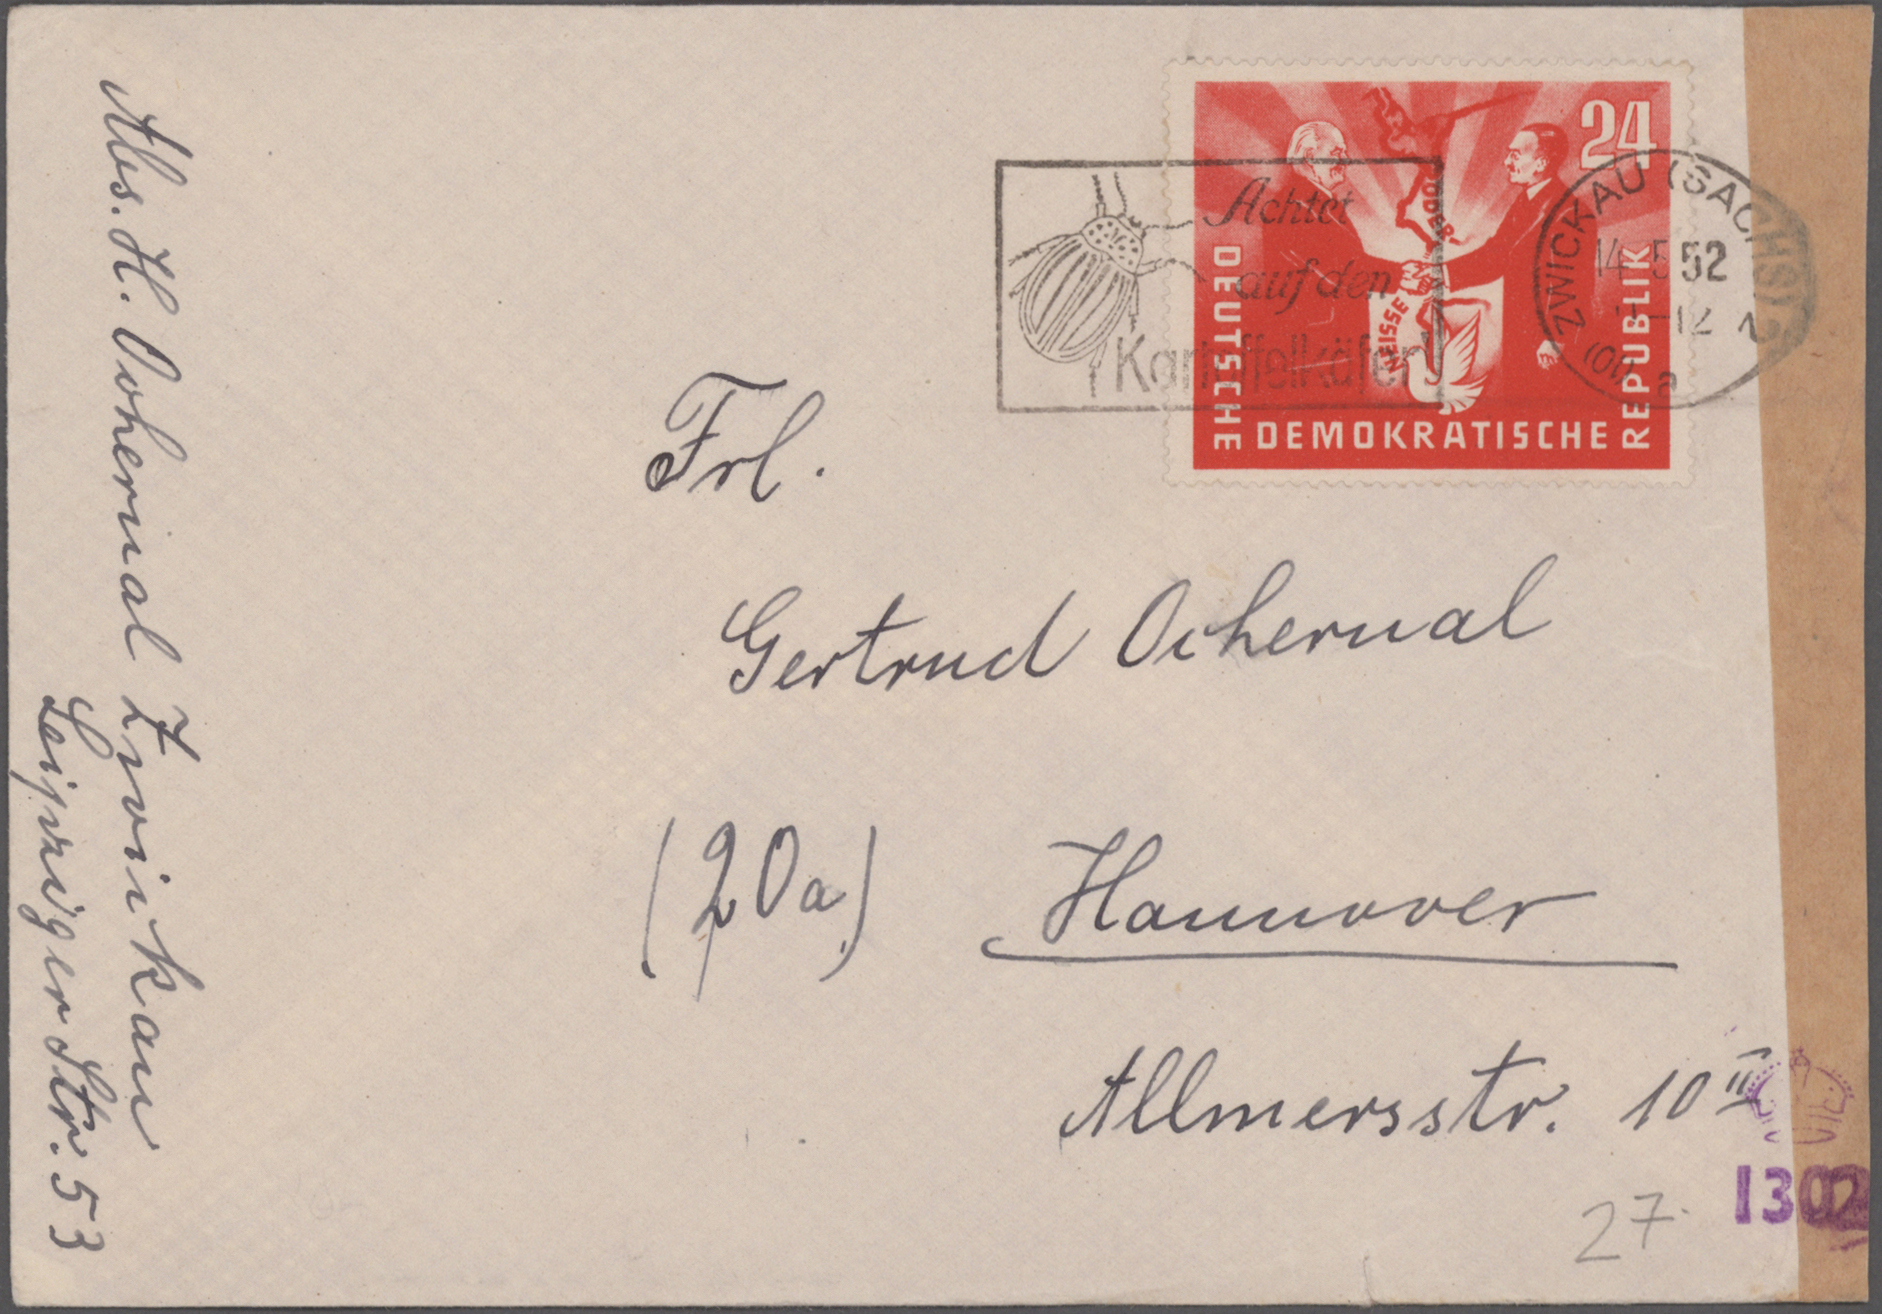 Abs. H. Ochernal Zwickau
Leipziger Str. 53
Achtet
auf den
Kartoffelkäfer!
24
ODER-
NEISSE
DEUTSCHE
DEMOKRATISCHE
REPUBLIK
ZWICKAU (SACHS) 2
14.5.52
-12
(10) a
Frl.
Gertrud Ochernal
(20a) Hannover
Allmersstr. 10 II
1302
27.